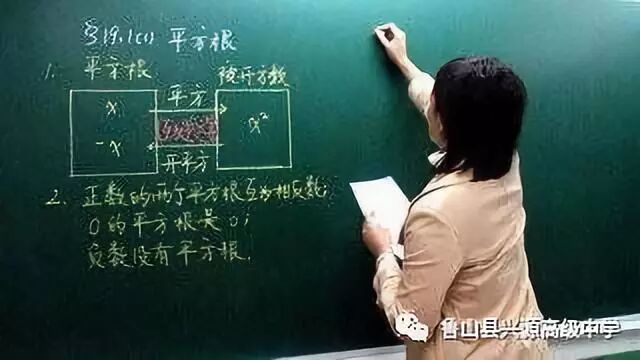 §19.1(1) 平方根
1. 平方根 被开方数
平方
x
-x
x²
开平方
2. 正数的两个平方根互为相反数;
0的平方根是0;
负数没有平方根.
鲁山县兴源高级中学